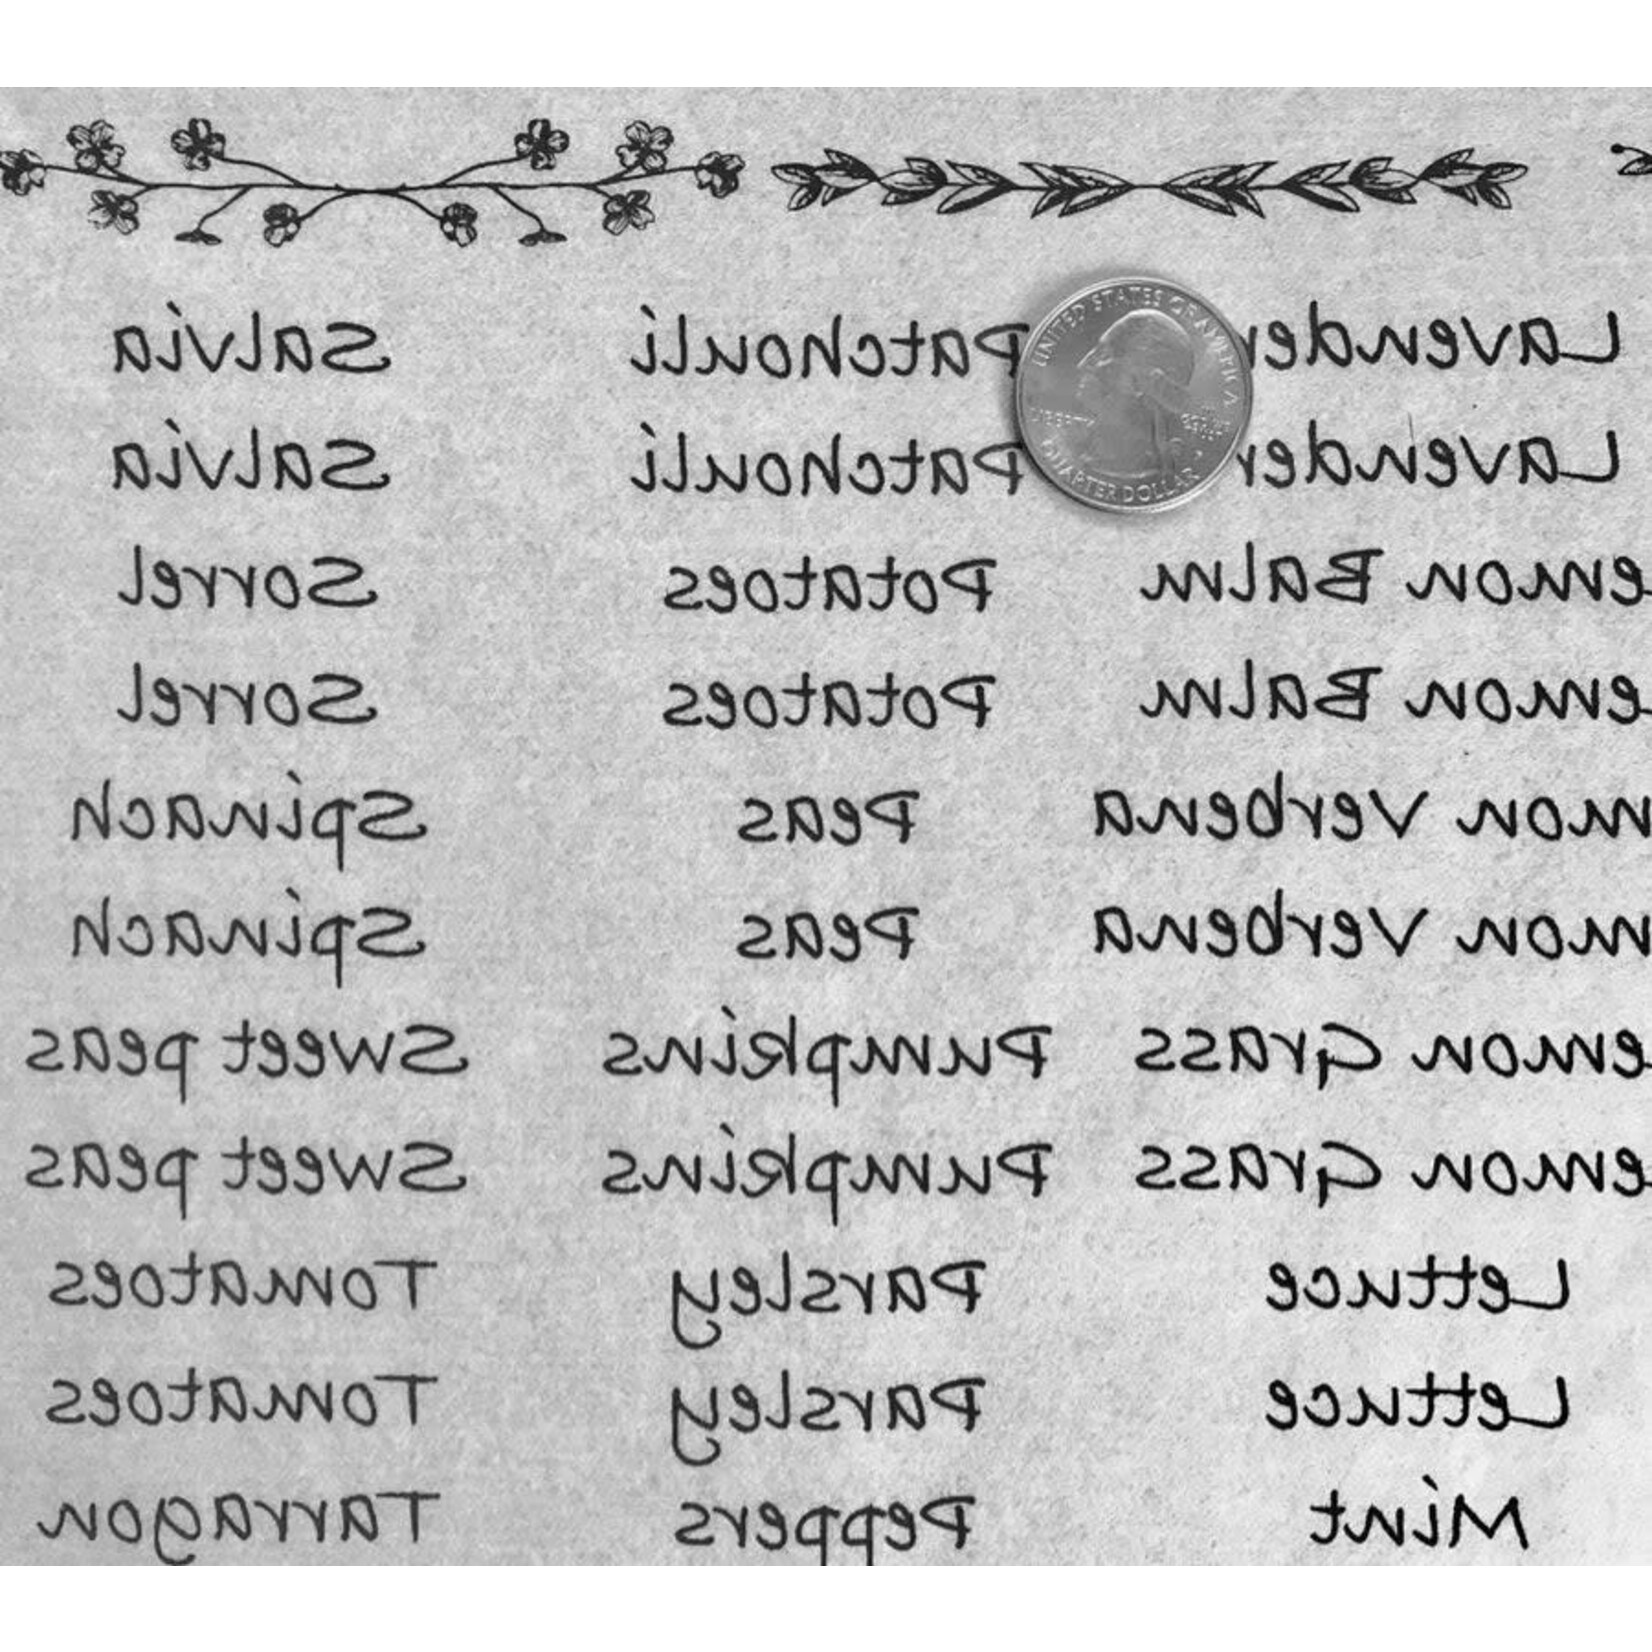 Salvia
Salvia
Sorrel
Sorrel
Spinach
Spinach
Sweet peas
Sweet peas
Tomatoes
Tomatoes
Tarragon
Patchouli
Patchouli
Potatoes
Potatoes
Peas
Peas
Pumpkins
Pumpkins
Parsley
Parsley
Peppers
UNITED STATES OF AMERICA
LIBERTY
QUARTER DOLLAR
Lavender
Lavender
emon Balm
emon Balm
mon Verbena
mon Verbena
emon Grass
emon Grass
Lettuce
Lettuce
Mint